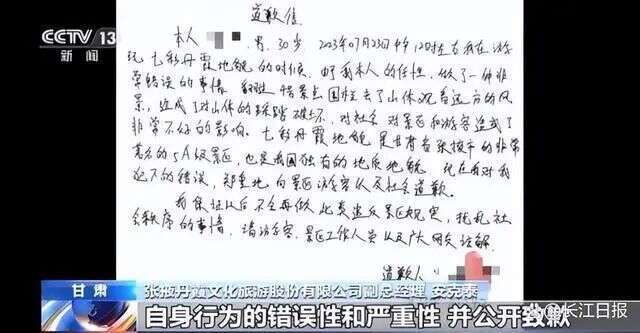 CCTV 13
新闻
道歉信
本人 男，30岁 2023年07月23日中午12时左右我在游
玩七彩丹霞地貌的时候，由于我本人的任性，做了一件非
常错误的事情 翻越 景点围栏去了山体观看远方的风
景，造成了对山体的踩踏破坏，对社会 对景区和游客造成了
非常不好的影响。七彩丹霞地貌是甘肃省张掖市的非常
著名的5A级景区，也是我国独有的地质地貌 现在我对我
犯下的错误，郑重地向景区游客以及社会道歉。
我保证以后不会再做此类违反景区规定，扰乱社
会秩序的事情，请游客、景区工作人员以及广大网友谅解
道歉人：
甘肃
张掖丹霞文化旅游股份有限公司副总经理 安克泰
自身行为的错误性和严重性 并公开致歉
@长江日报